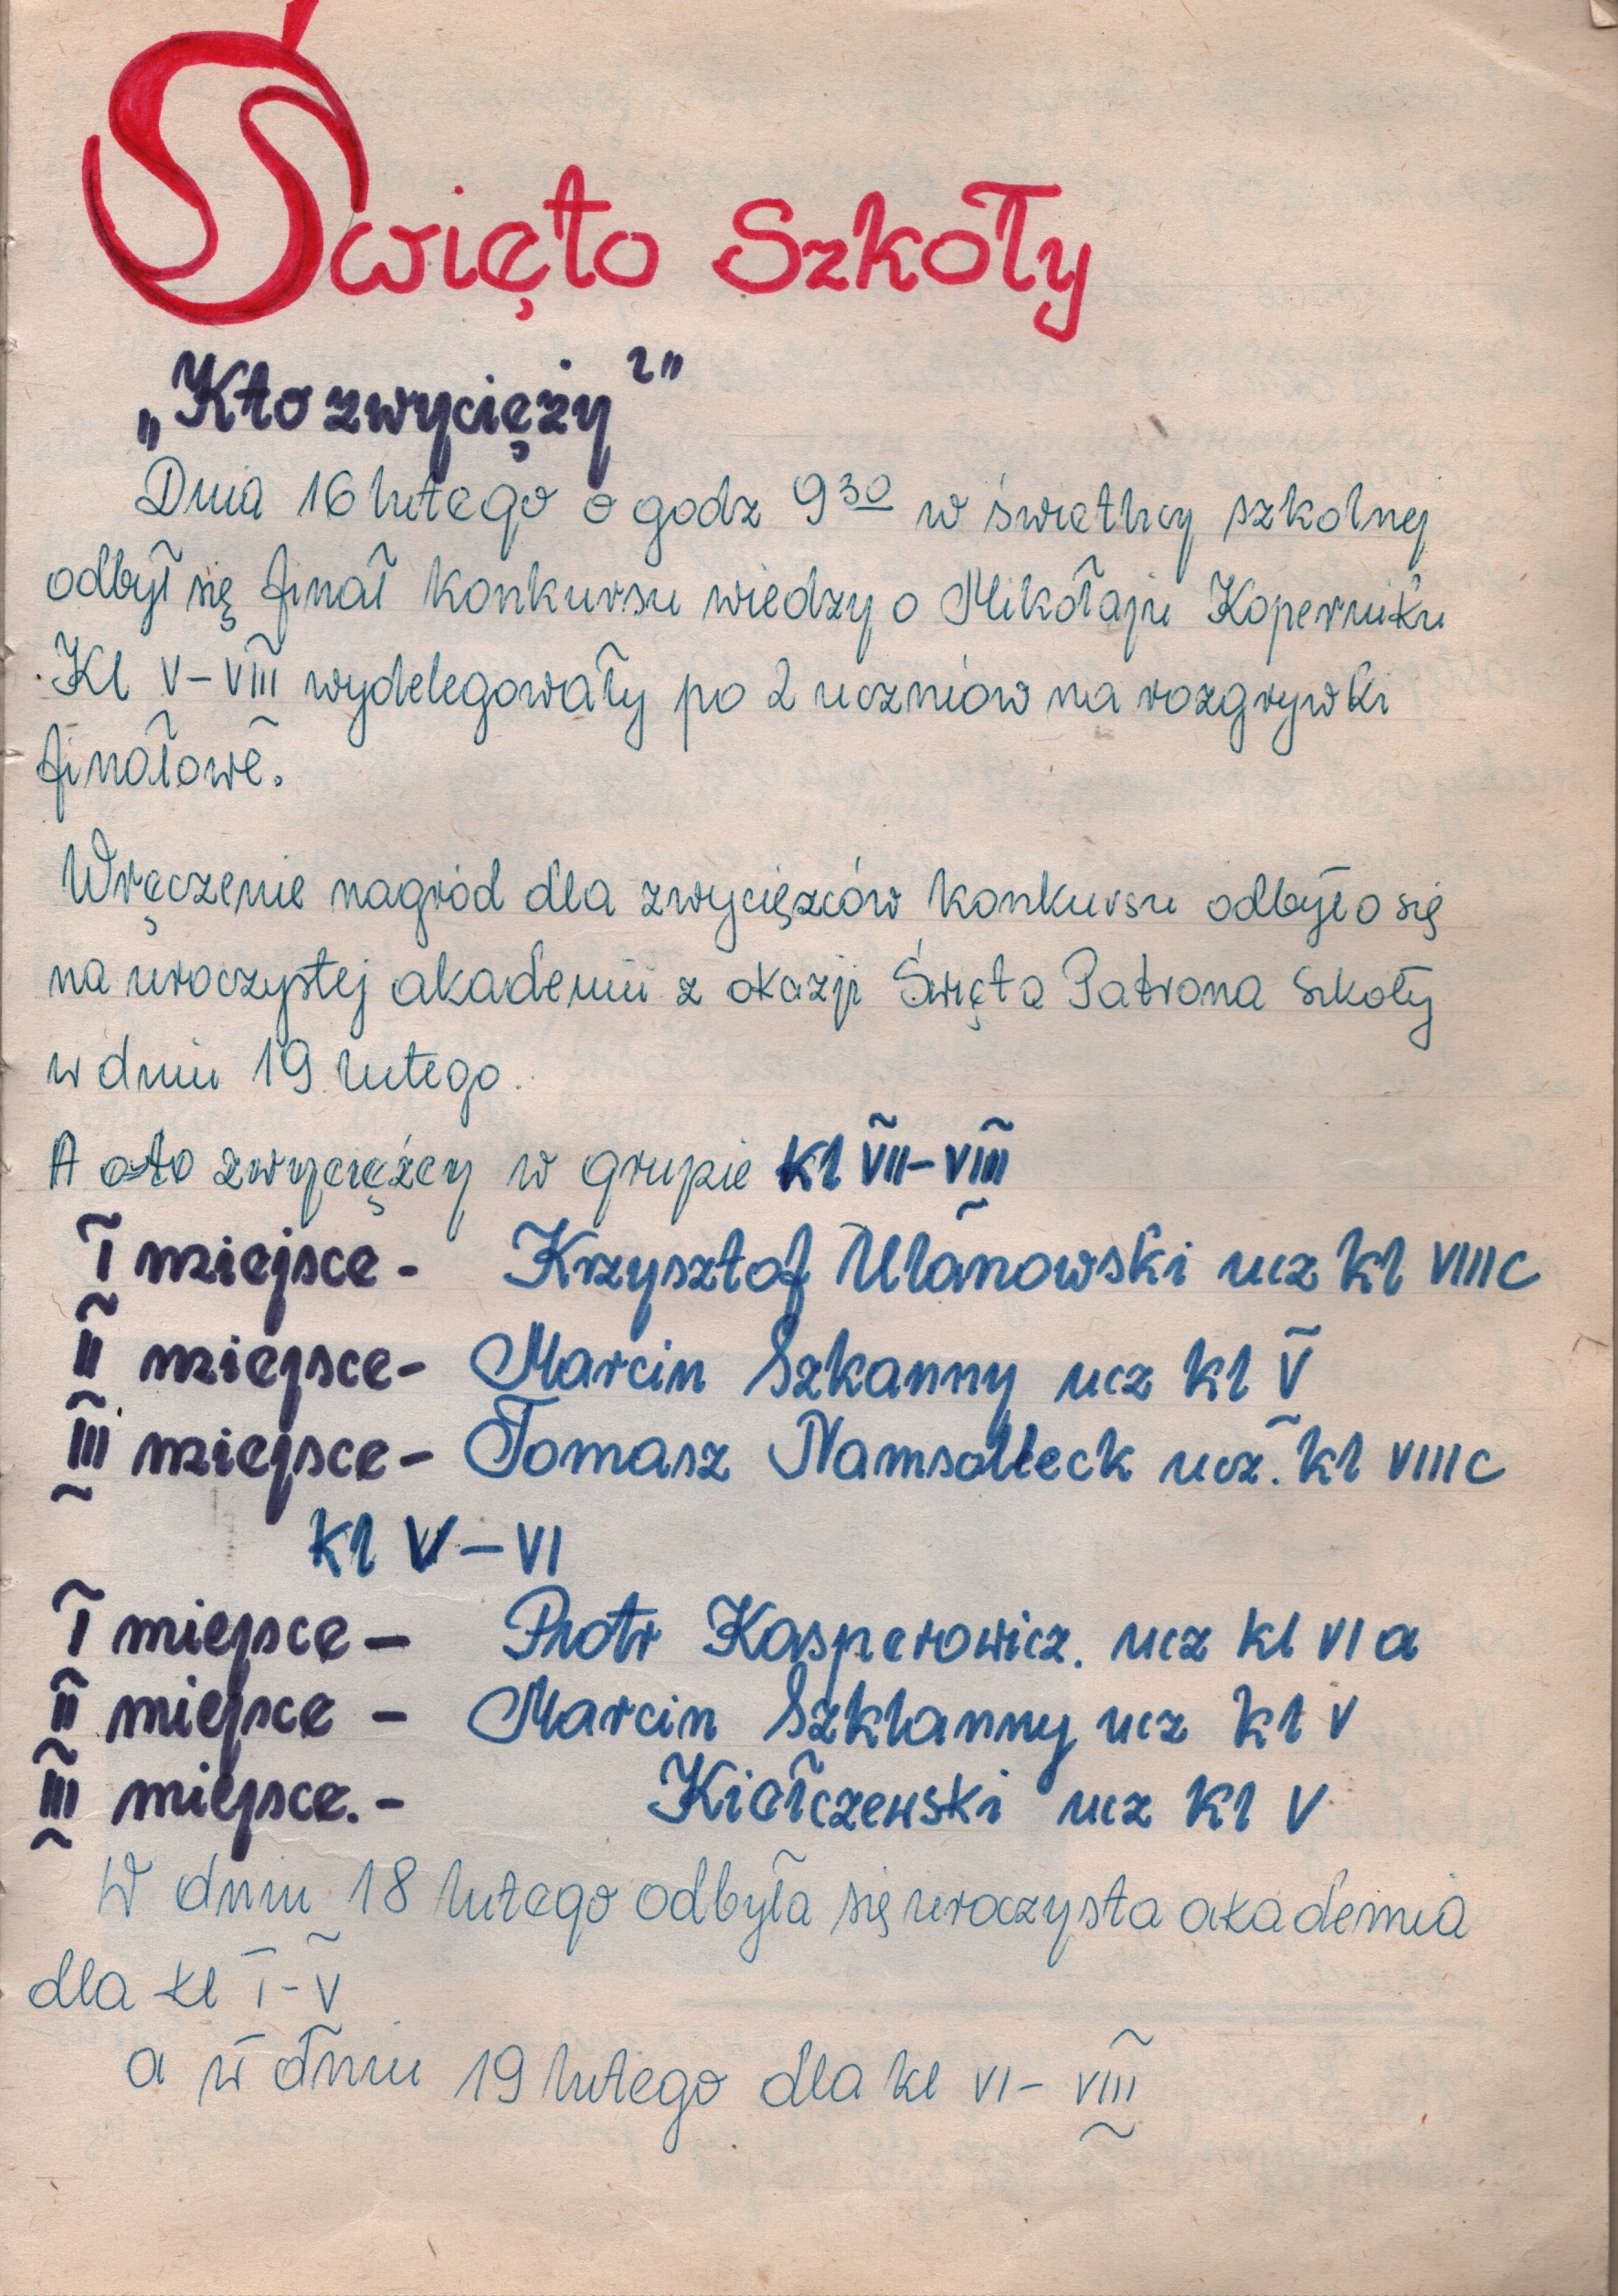 Święto Szkoły
„Kto zwycięży?"
Dnia 16 lutego o godz 9³⁰ w świetlicy szkolnej
odbył się finał konkursu wiedzy o Mikołaju Koperniku
Kl V-VIII wydelegowały po 2 uczniów na rozgrywki
finałowe.
Wręczenie nagród dla zwycięzców konkursu odbyło się
na uroczystej akademii z okazji Święta Patrona Szkoły
w dniu 19 lutego.
A oto zwycięzcy w grupie kl VII-VIII
I miejsce - Krzysztof Ulanowski ucz kl VIIIc
II miejsce - Marcin Szkanny ucz kl V
III miejsce - Tomasz ucz. kl VIIIc
kl V - VI
I miejsce - Piotr Kasperowicz. ucz kl VI a
II miejsce - Marcin Szklanny ucz kl V
III miejsce. - Kiełczewski ucz kl V
W dniu 18 lutego odbyła się uroczysta akademia
dla kl I - V
a w dniu 19 lutego dla kl VI - VIII